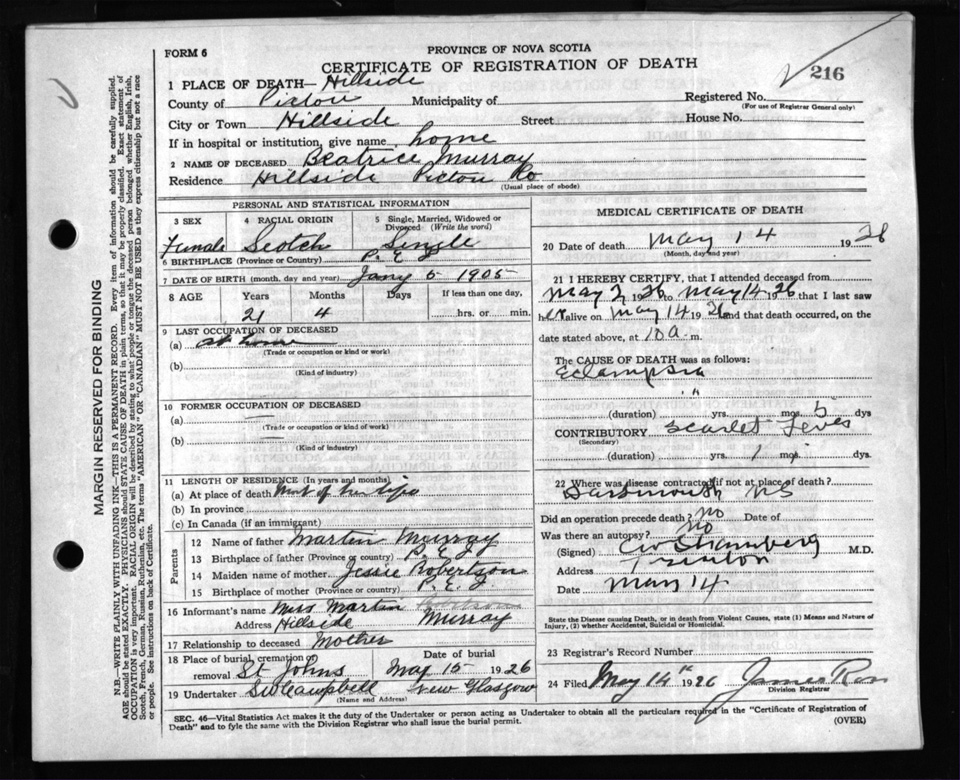 FORM 6
PROVINCE OF NOVA SCOTIA
CERTIFICATE OF REGISTRATION OF DEATH
216
1 PLACE OF DEATH— Hillside
County of Pictou Municipality of
Registered No.
(For use of Registrar General only)
City or Town Hillside Street House No.
If in hospital or institution, give name home
2 NAME OF DECEASED Beatrice Murray
Residence Hillside Pictou Co
(Usual place of abode)
PERSONAL AND STATISTICAL INFORMATION
3 SEX 4 RACIAL ORIGIN 5 Single, Married, Widowed or Divorced (Write the word)
Female Scotch Single
6 BIRTHPLACE (Province or Country) P. E. I.
7 DATE OF BIRTH (month, day and year) Jany 5 1905
8 AGE Years Months Days If less than one day,
21 4 hrs. or min.
9 LAST OCCUPATION OF DECEASED
(a) at home
(Trade or occupation or kind or work)
(b)
(Kind of industry)
10 FORMER OCCUPATION OF DECEASED
(a) —
(Trade or occupation or kind of work)
(b) —
(Kind of industry)
11 LENGTH OF RESIDENCE (In years and months)
(a) At place of death most of her life
(b) In province
(c) In Canada (if an immigrant)
Parents
12 Name of father Martin Murray
13 Birthplace of father (Province or country) P. E. I.
14 Maiden name of mother Jessie Robertson
15 Birthplace of mother (Province or country) P. E. I.
16 Informant's name Mrs. Martin Murray
Address Hillside
17 Relationship to deceased Mother
18 Place of burial, cremation or removal St Johns May 15 1926
19 Undertaker Campbell New Glasgow
(Name and Address)
MEDICAL CERTIFICATE OF DEATH
20 Date of death May 14 1926
(Month, day and year)
21 I HEREBY CERTIFY, that I attended deceased from
May 2 1926 to May 14 1926 that I last saw
her alive on May 14 1926 and that death occurred, on the
date stated above, at 10 a m.
The CAUSE OF DEATH was as follows:
Eclampsia
"
(duration) yrs. mos. 5 dys
CONTRIBUTORY Scarlet Fever
(Secondary)
(duration) yrs. 1 mos. dys.
22 Where was disease contracted if not at place of death?
Dartmouth NS
Did an operation precede death? No Date of
Was there an autopsy? No
(Signed) M.D.
Address Trenton
Date May 14
State the Disease causing Death, or in death from Violent Causes, state (1) Means and Nature of
Injury, (2) whether Accidental, Suicidal or Homicidal.
23 Registrar's Record Number
24 Filed May 14th 1926 James Ross
Division Registrar
SEC. 46—Vital Statistics Act makes it the duty of the Undertaker or person acting as Undertaker to obtain all the particulars required in the "Certificate of Registration of
Death" and to fyle the same with the Division Registrar who shall issue the burial permit.
(OVER)
MARGIN RESERVED FOR BINDING
N.B.—WRITE PLAINLY WITH UNFADING INK—THIS IS A PERMANENT RECORD. Every item of information should be carefully supplied.
AGE should be stated EXACTLY. PHYSICIANS should STATE CAUSE OF DEATH in plain terms, so that it may be properly classified. Exact statement of
OCCUPATION is very important. RACIAL ORIGIN will be described by stating to what people or tongue the deceased person belonged whether English, Irish,
Scotch, French, German, Russian, Ruthenian, etc. The terms "AMERICAN" OR "CANADIAN" MUST NOT BE USED as they express citizenship but not a race
or people. See instructions on back of Certificate.